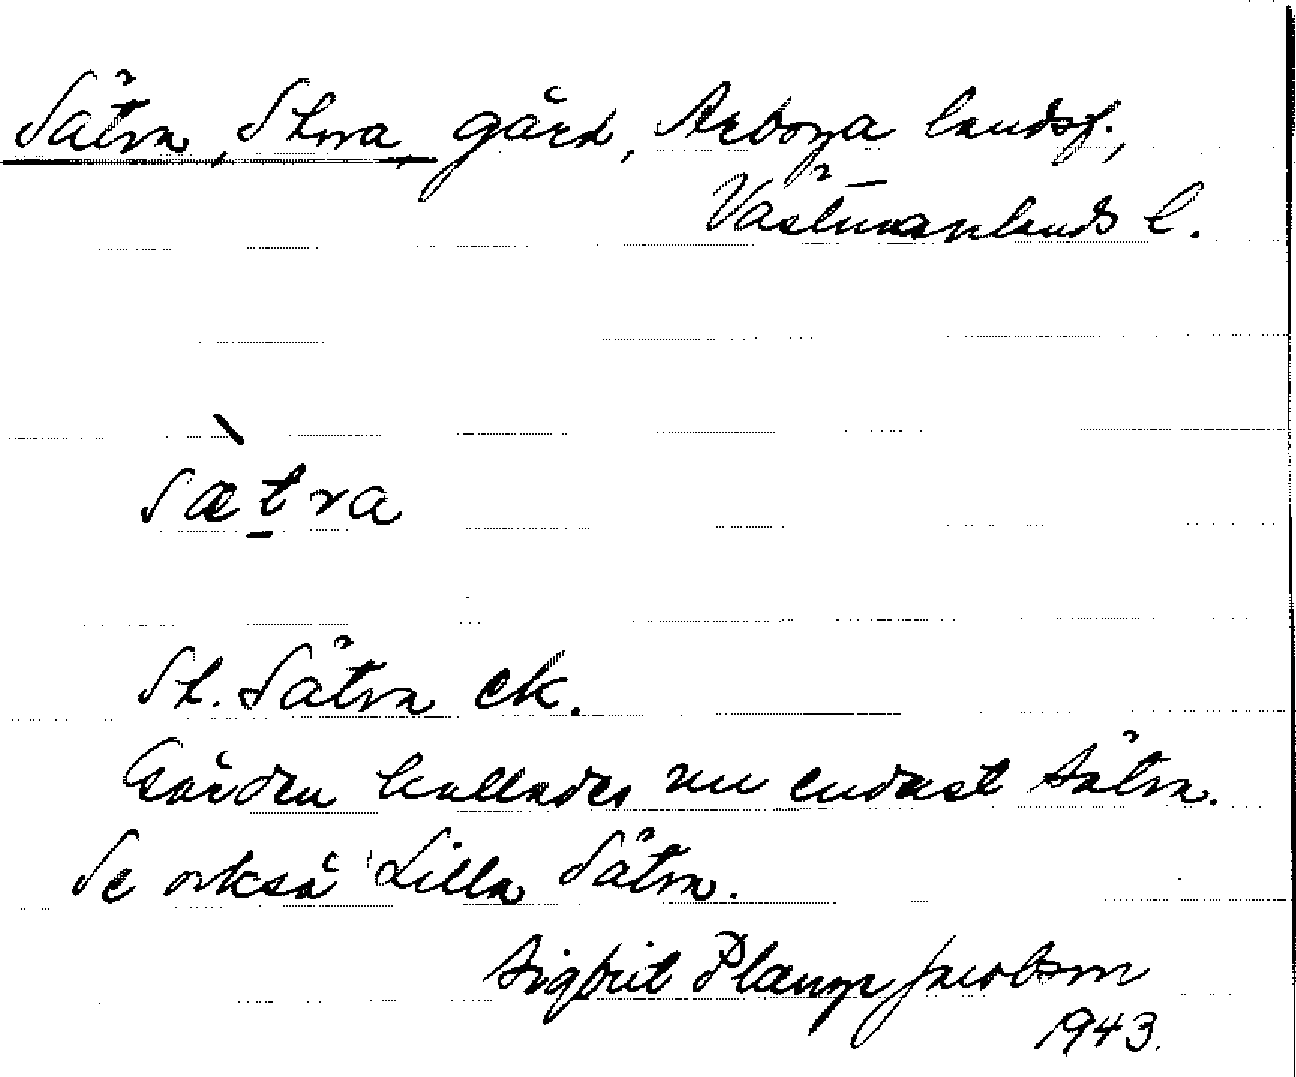 Sätra, Stora, gård, Arboga landsf.,
Västmanlands l.
sæ̀t̠ra
St. Sätra ek.
Gården kallades nu endast Sätra.
Se också Lilla Sätra.
Sigfrid Jacobson
1943.